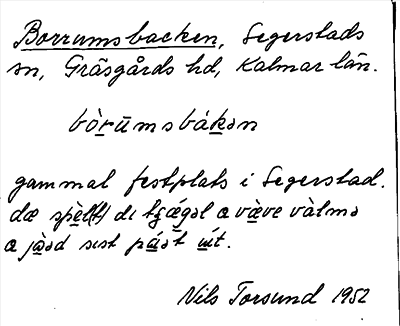 Borrumsbacken, Segerstads
sn, Gräsgårds hd, Kalmar län.
bòrūmsbákən
gammal festplats i Segerstad.
dæ spèl(t) di tjǽgəl ɑ vǽve vàlmə
ɑ jàəd sist pǻət út.
Nils Torsund 1952